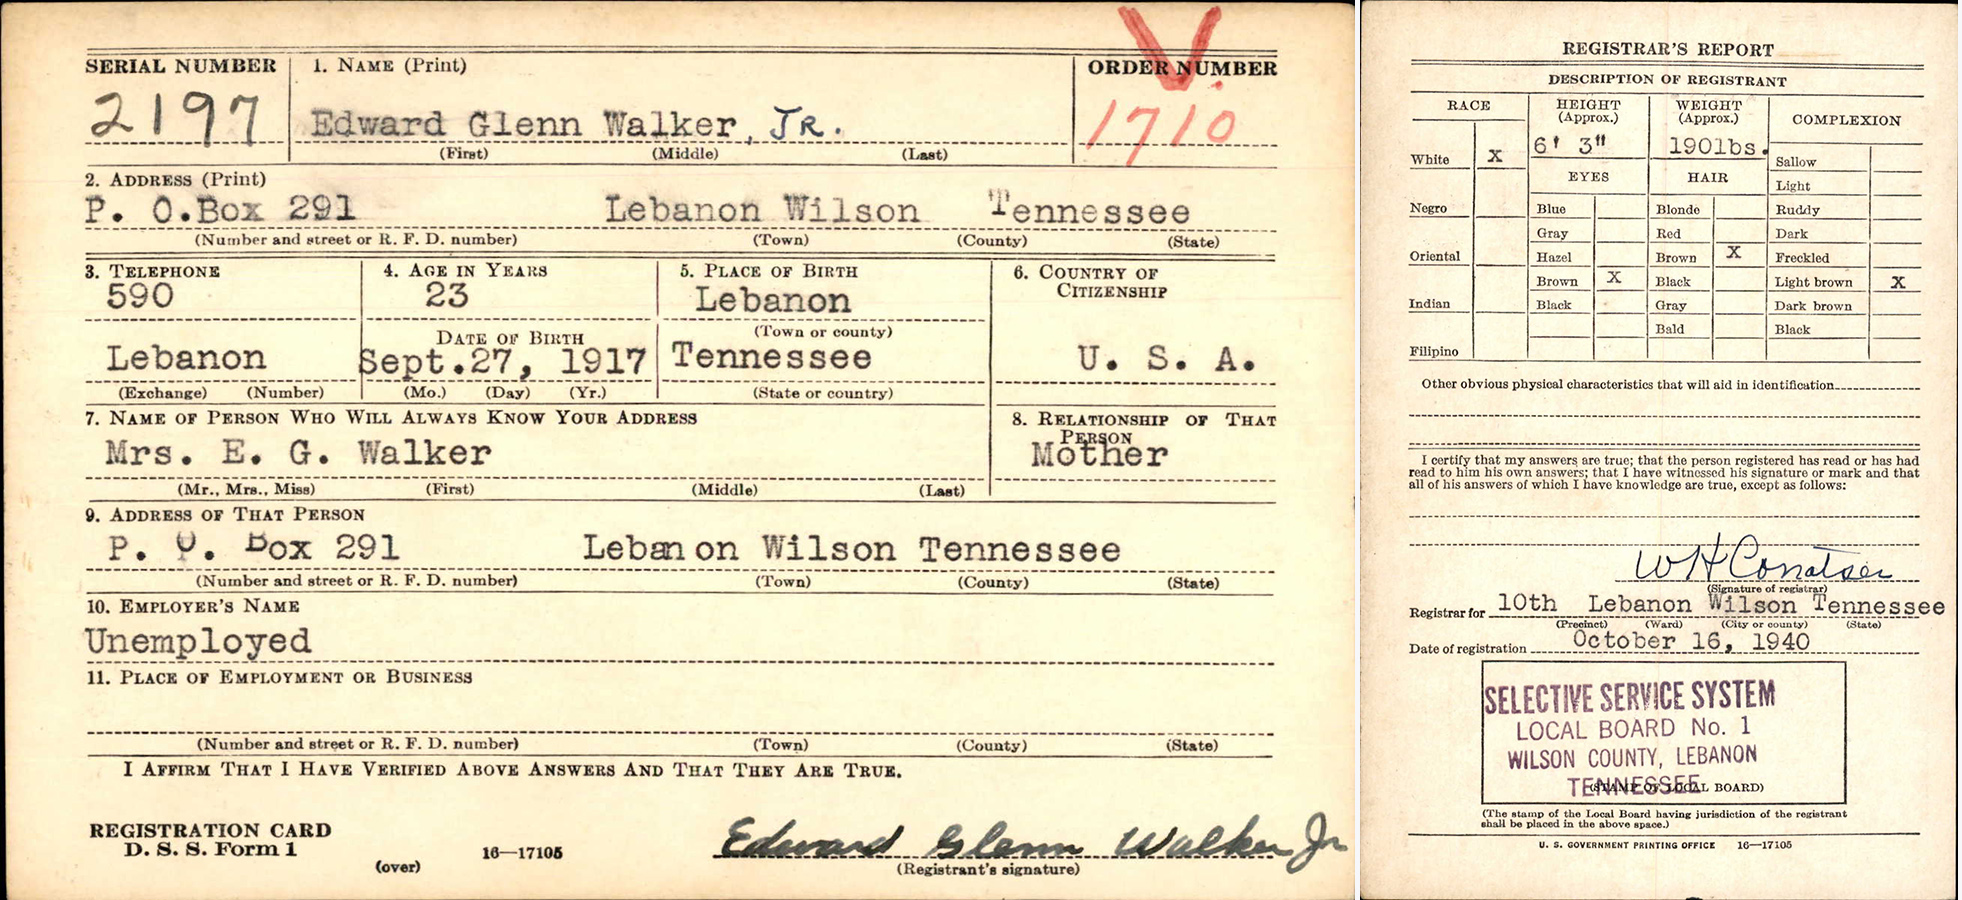 SERIAL NUMBER 1. NAME (Print) ORDER NUMBER
V.
2197 Edward Glenn Walker, JR. 1710
(First) (Middle) (Last)
2. ADDRESS (Print)
P. O.Box 291 Lebanon Wilson Tennessee
(Number and street or R. F. D. number) (Town) (County) (State)
3. TELEPHONE 4. AGE IN YEARS 5. PLACE OF BIRTH 6. COUNTRY OF
CITIZENSHIP
590 23 Lebanon
(Town or county)
DATE OF BIRTH
Lebanon Sept.27, 1917 Tennessee U. S. A.
(Exchange) (Number) (Mo.) (Day) (Yr.) (State or country)
7. NAME OF PERSON WHO WILL ALWAYS KNOW YOUR ADDRESS 8. RELATIONSHIP OF THAT
PERSON
Mrs. E. G. Walker Mother
(Mr., Mrs., Miss) (First) (Middle) (Last)
9. ADDRESS OF THAT PERSON
P. O. Box 291 Lebanon Wilson Tennessee
(Number and street or R. F. D. number) (Town) (County) (State)
10. EMPLOYER'S NAME
Unemployed
11. PLACE OF EMPLOYMENT OR BUSINESS
(Number and street or R. F. D. number) (Town) (County) (State)
I AFFIRM THAT I HAVE VERIFIED ABOVE ANSWERS AND THAT THEY ARE TRUE.
REGISTRATION CARD
D. S. S. Form 1 16—17105 Edward Glenn Walker Jr
(over) (Registrant's signature)
REGISTRAR'S REPORT
DESCRIPTION OF REGISTRANT
RACE HEIGHT (Approx.) WEIGHT (Approx.) COMPLEXION
6' 3" 190lbs.
White X Sallow
EYES HAIR Light
Negro Blue Blonde Ruddy
Gray Red Dark
Oriental Hazel Brown X Freckled
Brown X Black Light brown X
Indian Black Gray Dark brown
Bald Black
Filipino
Other obvious physical characteristics that will aid in identification
I certify that my answers are true; that the person registered has read or has had
read to him his own answers; that I have witnessed his signature or mark and that
all of his answers of which I have knowledge are true, except as follows:
W H Conatser
(Signature of registrar)
Registrar for 10th Lebanon Wilson Tennessee
(Precinct) (Ward) (City or county) (State)
Date of registration October 16, 1940
SELECTIVE SERVICE SYSTEM
LOCAL BOARD No. 1
WILSON COUNTY, LEBANON
TENNESSEE
(STAMP OF LOCAL BOARD)
(The stamp of the Local Board having jurisdiction of the registrant
shall be placed in the above space.)
U. S. GOVERNMENT PRINTING OFFICE 16—17105